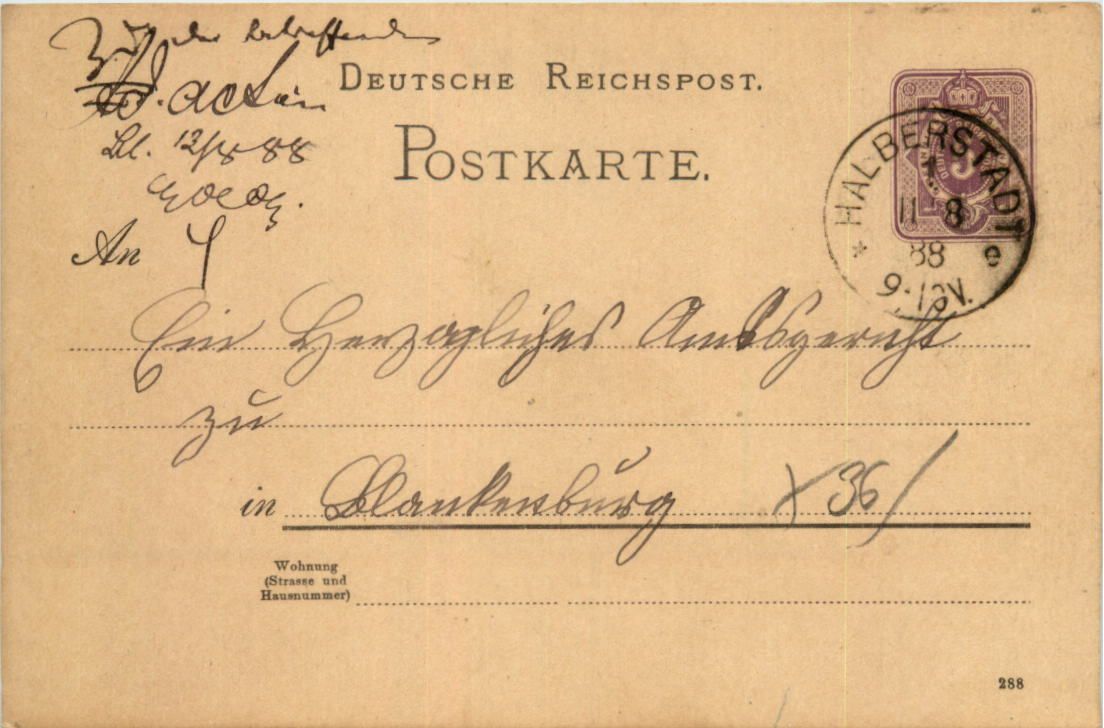 Zu den betreffenden
Acten
Bl. 12/8 88
DEUTSCHE REICHSPOST.
POSTKARTE.
HALBERSTADT
11 8
88
9-10V.
e
An
Ein Herzogliches Amtsgericht
zu
in Blankenburg
36
Wohnung
(Strasse und
Hausnummer)
288